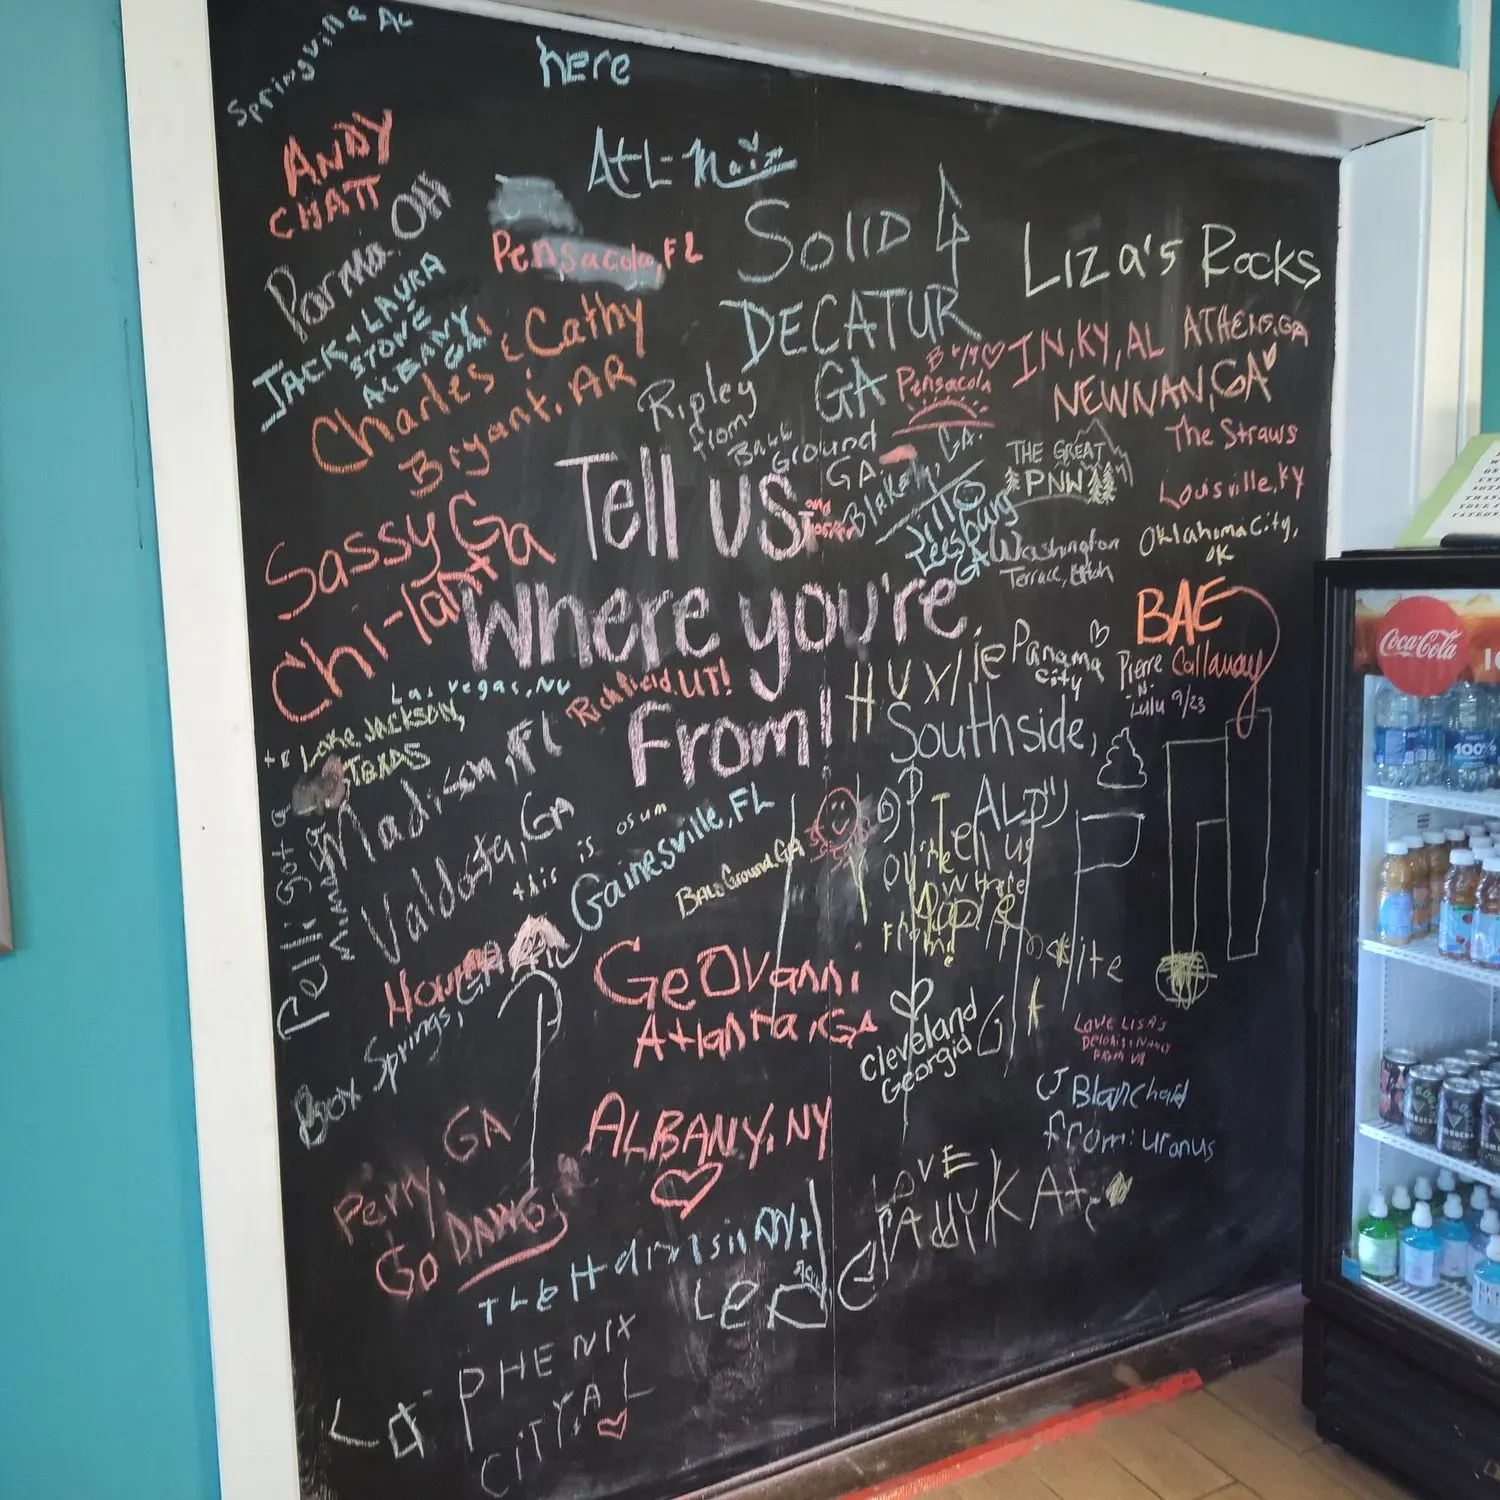 Springville AL
here
ANDY
CHATT
ATL-
Parma OH
Pensacola, FL
SOLID
DECATUR
GA
LIZA'S ROCKS
JACK & LAURA
STOVE
ALBANY
GA!
Charles & Cathy
Bryant, AR
Ripley
from
Ball
Ground
GA.
Pensacola
IN, KY, AL
ATHENS, GA
NEWNAN, GA
The Straws
Louisville, KY
Oklahoma City,
OK
THE GREAT
PNW
Blakely, GA.
Leesburg
GA
Washington
Terrace, Utah
Sassy Ga
Chi-lanta
Tell us
Where you're
From!
Las Vegas, NV
Richfield, UT!
Lake JACKSON,
TEXAS
Huxlie
Panama
city
BAE
Pierre Callaway
Lulu 9/23
Southside,
AL
Madison, FL
Valdosta, GA
this is osum
Gainesville, FL
Ball Ground, GA
Tell us
where
From
Pelli Got a
Box Springs, GA
GeOvanni
Atlanta, GA
Cleveland
Georgia
LOVE LISA'S
FROM VA
CJ Blanchard
from: uranus
ALBANY, NY
Perry, GA
GO DAWGS
LOVE
KAt
PHENIX
CITY, AL
Coca-Cola
100%